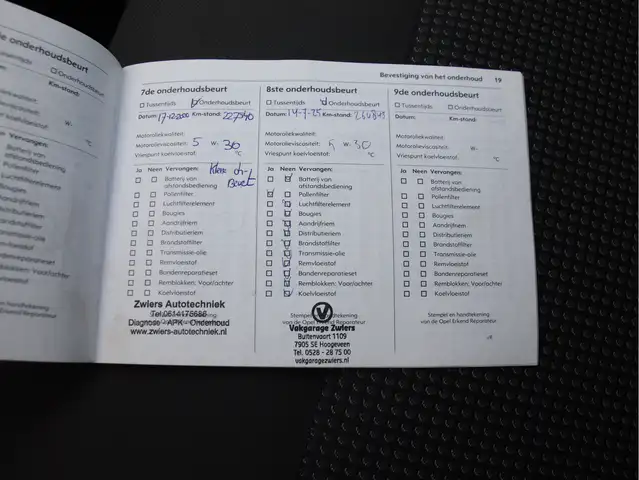 de onderhoudsbeurt
Onderhoudsbeurt
Km-stand:
Vervangen:
Batterij van
afstandsbediening
Pollenfilter
Luchtfilterelement
Bougies
Aandrijfriem
Distributieriem
Brandstoffilter
Transmissie-olie
Remvloeistof
Bandenreparatieset
Remblokken: Voor/achter
Koelvloeistof
Bevestiging van het onderhoud 19
7de onderhoudsbeurt
Tussentijds Onderhoudsbeurt
Datum: Km-stand: 227540
Motoroliekwaliteit:
Motorolieviscositeit: 5 W- 30
Vriespunt koelvloeistof: °C
Klein
Beurt
Ja Neen Vervangen:
Batterij van
afstandsbediening
Pollenfilter
Luchtfilterelement
Bougies
Aandrijfriem
Distributieriem
Brandstoffilter
Transmissie-olie
Remvloeistof
Bandenreparatieset
Remblokken: Voor/achter
Koelvloeistof
Zwiers Autotechniek
Tel.0614175686
Diagnose - APK - Onderhoud
www.zwiers-autotechniek.nl
8ste onderhoudsbeurt
Tussentijds Onderhoudsbeurt
Datum: 14-7-25 Km-stand:
Motoroliekwaliteit:
Motorolieviscositeit: 5 W- 30
Vriespunt koelvloeistof: °C
Ja Neen Vervangen:
Batterij van
afstandsbediening
Pollenfilter
Luchtfilterelement
Bougies
Aandrijfriem
Distributieriem
Brandstoffilter
Transmissie-olie
Remvloeistof
Bandenreparatieset
Remblokken: Voor/achter
Koelvloeistof
Stempel en handtekening
van de Opel Erkend Reparateur
Vakgarage Zwiers
Buitenvaart 1109
7905 SE Hoogeveen
Tel. 0528 - 28 75 00
vakgaragezwiers.nl
9de onderhoudsbeurt
Tussentijds Onderhoudsbeurt
Datum: Km-stand:
Motoroliekwaliteit:
Motorolieviscositeit: W-
Vriespunt koelvloeistof: °C
Ja Neen Vervangen:
Batterij van
afstandsbediening
Pollenfilter
Luchtfilterelement
Bougies
Aandrijfriem
Distributieriem
Brandstoffilter
Transmissie-olie
Remvloeistof
Bandenreparatieset
Remblokken: Voor/achter
Koelvloeistof
Stempel en handtekening
van de Opel Erkend Reparateur